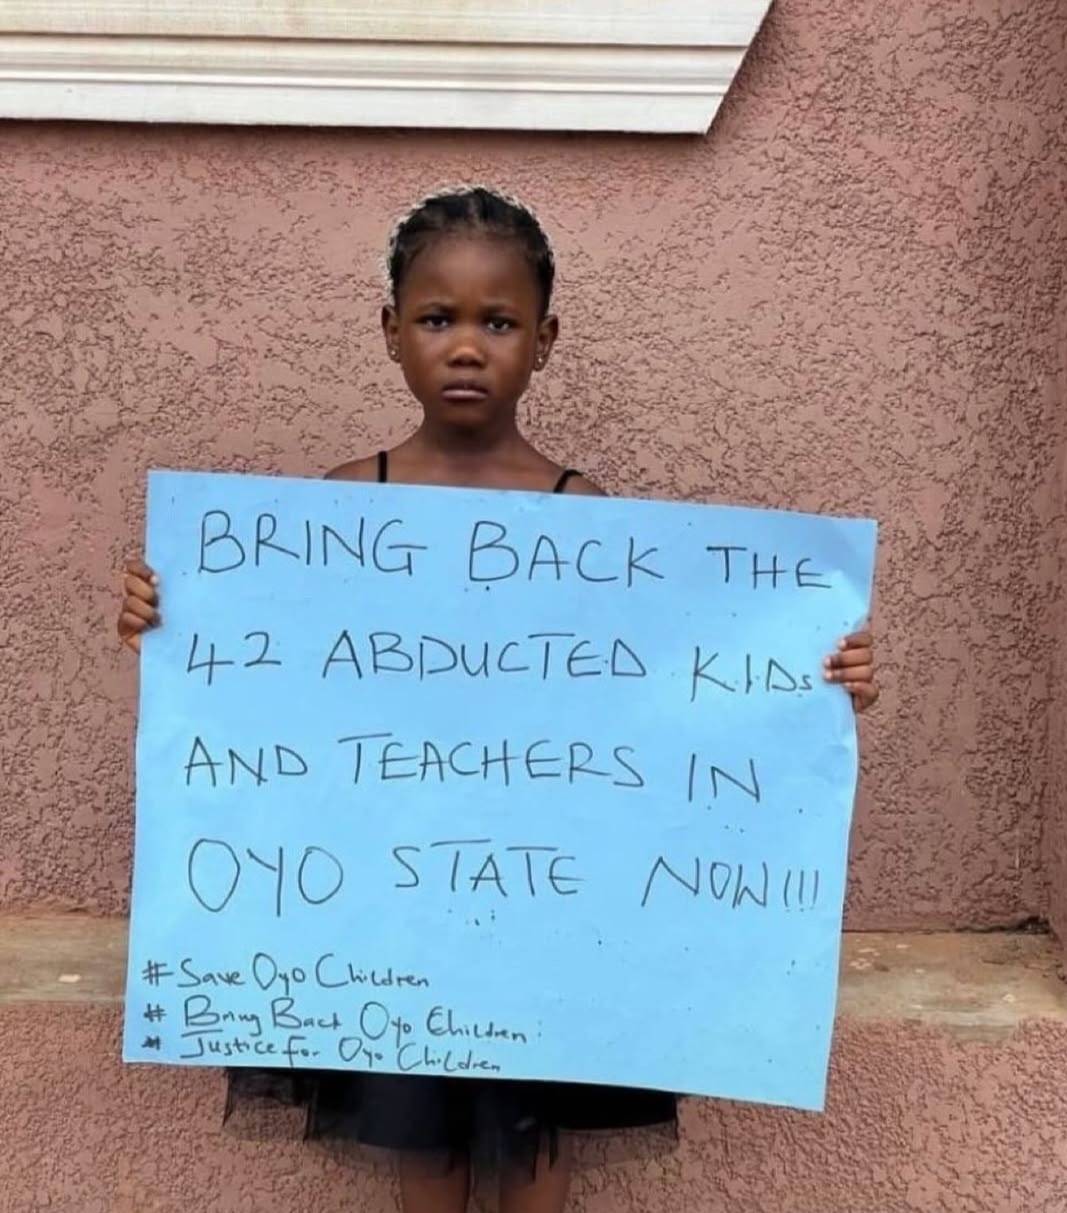 BRING BACK THE
42 ABDUCTED KIDs
AND TEACHERS IN
OYO STATE NOW!!!
# Save Oyo Children
# Bring Back Oyo Children
# Justice for Oyo Children